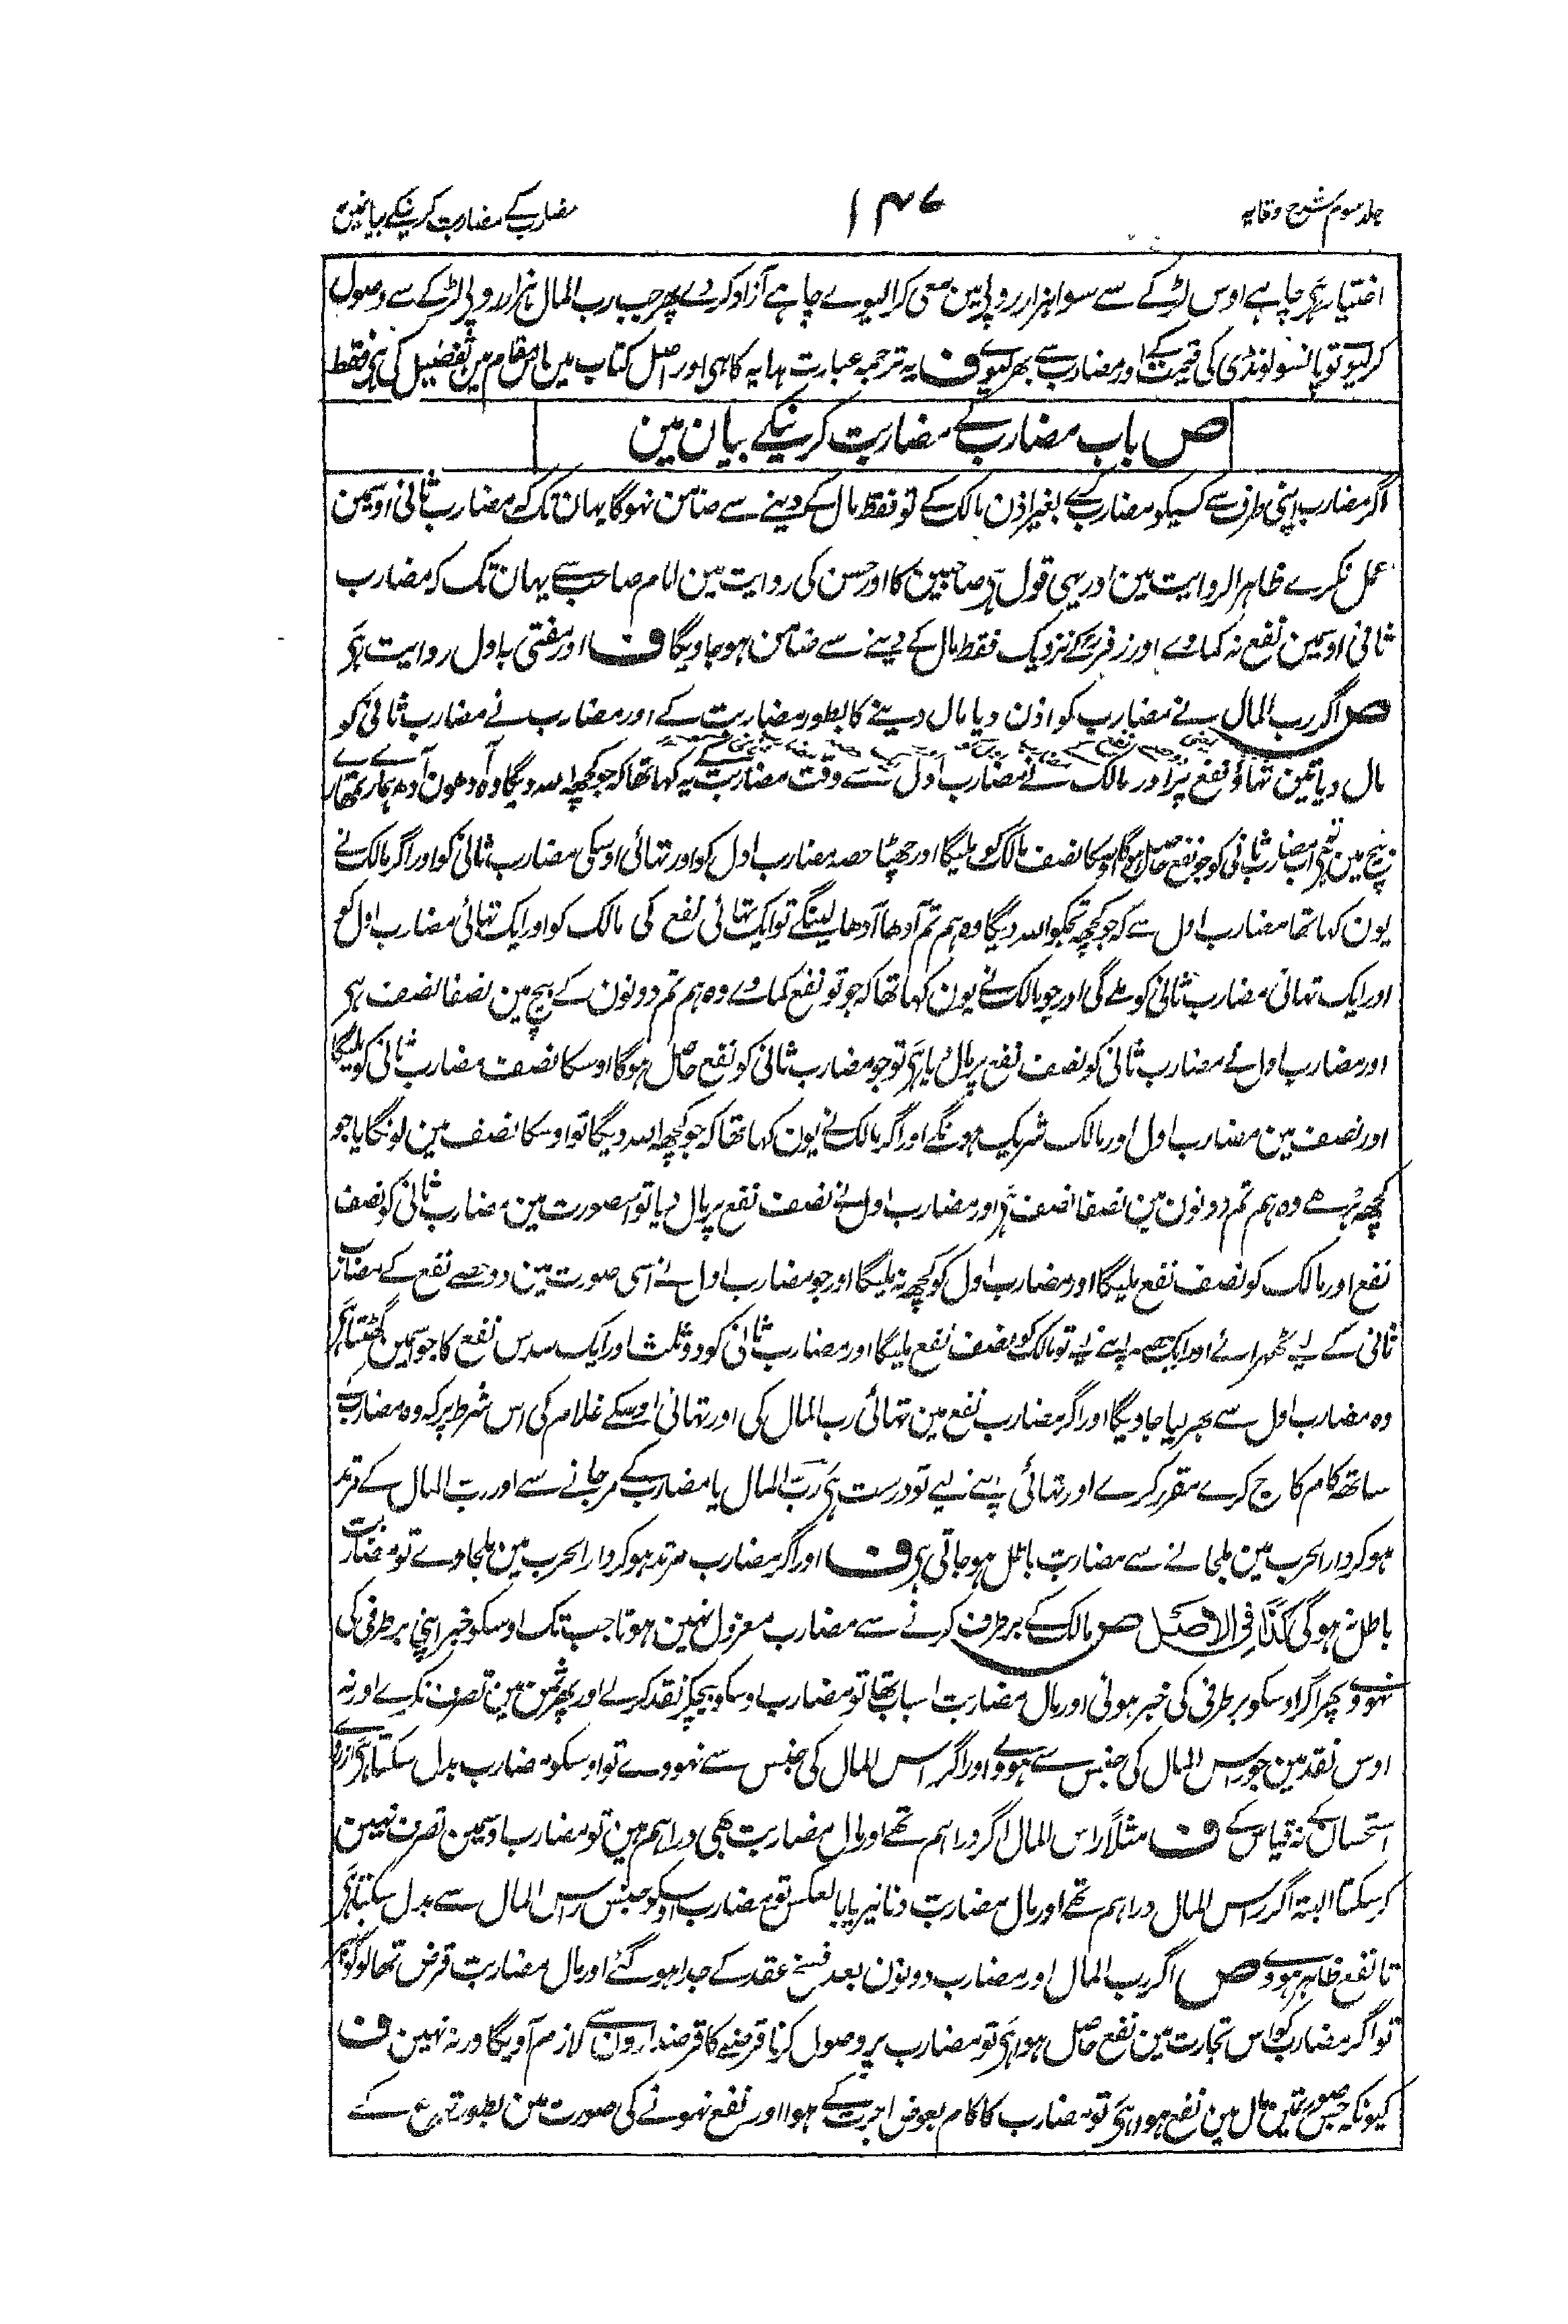 جلد سوم شرح وقایہ
۱۴۷
مضارب کے مضاربت کرنیکے بیانمین
اختیار ہی چاہے اوس لڑکے سے سوا ہزار روپی مین سعی کرا لیوے چاہے آزاد کر دے پھر جب رب المال ہزار روپی لڑکے سے وصول
کر لیو تو پانسو لونڈی کی قیمت کے اور مضارب سے بھر لیوے ف یہ ترجمہ عبارت ہدایہ کا ہی اور اصل کتاب مین اس مقام مین تفصیل کی ہی فقط
ص باب مضارب کے مضاربت کرنیکے بیان مین
اگر مضارب اپنی طرف سے کسیکو مضارب کرے بغیر اذن مالک کے تو فقط مال کے دینے سے ضامن نہوگا یہان تک کہ مضارب ثانی اوسمین
عمل نکرے ظاہر الروایت مین اور یہی قول ہی صاحبین کا اور حسن کی روایت مین امام صاحب سے یہان تک کہ مضارب
ثانی اوسمین نفع نہ کماوے اور زفر کے نزدیک فقط مال کے دینے سے ضامن ہو جاویگا ف اور مفتی بہ اول روایت ہی
ص اگر رب المال نے مضارب کو اذن دیا مال دینے کا بطور مضاربت کے اور مضارب نے مضارب ثانی کو
مال دیا تین تہاؤ نفع پر اور مالک نے مضارب اول سے وقت مضاربت کے یہ کہا تھا کہ جو کچھ اللہ دیگا وہ آدھون آدھ ہمارے تمھارے
بیچ مین ہی اب مضارب ثانی کو جو نفع حاصل ہوگا اوسکا نصف مالک کو ملیگا اور چھٹا حصہ مضارب اول کو اور تہائی اوسکی مضارب ثانی کو اور اگر مالک نے
یون کہا تھا مضارب اول سے کہ جو کچھ تجکو اللہ دیگا وہ ہم تم آدھا آدھا لینگے تو ایک تہائی نفع کی مالک کو اور ایک تہائی مضارب اول کو
اور ایک تہائی مضارب ثانی کو ملے گی اور جو مالک نے یون کہا تھا کہ جو تو نفع کماوے وہ ہم تم دونون کے بیچ مین نصفا نصف ہی
اور مضارب اول نے مضارب ثانی کو نصف نفع پر مال دیا ہی تو جو مضارب ثانی کو نفع حاصل ہوگا اوسکا نصف مضارب ثانی کو ملیگا
اور نصف مین مضارب اول اور مالک شریک ہونگے اور اگر مالک نے یون کہا تھا کہ جو کچھ اللہ دیگا تو اوسکا نصف مین لونگا یا جو
کچھ بڑھے وہ ہم تم دونون مین نصفا نصف ہی اور مضارب اول نے نصف نفع پر مال دیا تو اسصورت مین مضارب ثانی کو نصف
نفع اور مالک کو نصف نفع ملیگا اور مضارب اول کو کچھ نہ ملیگا اور جو مضارب اول نے اسی صورت مین دو حصے نفع کے مضارب
ثانی کے لیے ٹھہرائے اور ایک حصہ اپنے لیے تو مالک کو نصف نفع ملیگا اور مضارب ثانی کو دو ثلث اور ایک سدس نفع کا جو اسمین گھٹتا ہی
وہ مضارب اول سے بھر لیا جاویگا اور اگر مضارب نفع مین تہائی رب المال کی اور تہائی اوسکے غلام کی اس شرط پر کہ وہ مضارب کے
ساتھ کام کاج کرے مقرر کرے اور تہائی اپنے لیے تو درست ہی رب المال یا مضارب کے مر جانے سے اور رب المال کے مرتد
ہو کر دار الحرب مین ملجانے سے مضاربت باطل ہو جاتی ہی ف اور اگر مضارب مرتد ہو کر دار الحرب مین ملجاوے تو مضاربت
باطل نہوگی کذا فی الاصل ص مالک کے برطرف کرنے سے مضارب معزول نہین ہوتا جب تک اوسکو خبر اپنی برطرفی کی
نہووے پھر اگر اوسکو برطرفی کی خبر ہوئی اور مال مضاربت اسباب تھا تو مضارب اوسکو بیچکر نقد کر لے اور پھر ثمن مین تصرف نکرے اور نہ
اوس نقد مین جو راس المال کی جنس سے ہووے اور اگر راس المال کی جنس سے نہووے تو اوسکو مضارب بدل سکتا ہی ازروے
استحسان کے نہ قیاس کے ف مثلاً راس المال اگر دراہم تھے اور مال مضاربت بھی دراہم ہین تو مضارب اوسمین تصرف نہین
کر سکتا البتہ اگر راس المال دراہم تھے اور مال مضاربت دنانیر یا بالعکس تو مضارب اوسکو جنس راس المال سے بدل سکتا ہی
تا نفع ظاہر ہووے ص اگر رب المال اور مضارب دونون بعد فسخ عقد کے جدا ہو گئے اور مال مضاربت قرض تھا لوگونپر
تو اگر مضارب کو اس تجارت مین نفع حاصل ہوا ہی تو مضارب پر وصول کرنا قرضے کا قرضدارون سے لازم آویگا ورنہ نہین ف
کیونکہ جس صورتمین مال مین نفع ہوا ہی تو مضارب کا کام بعوض اجرت کے ہوا اور نفع نہونے کی صورت مین بطور تبرع کے